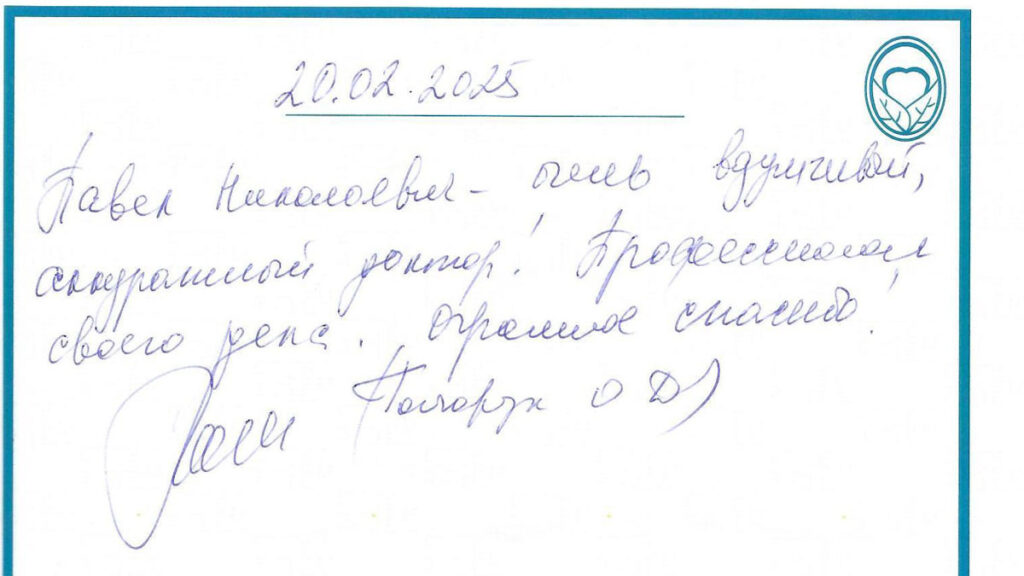 20.02.2025
Павел Николаевич - очень вдумчивый,
аккуратный доктор! Профессионал
своего дела. Огромное спасибо!
О Д)